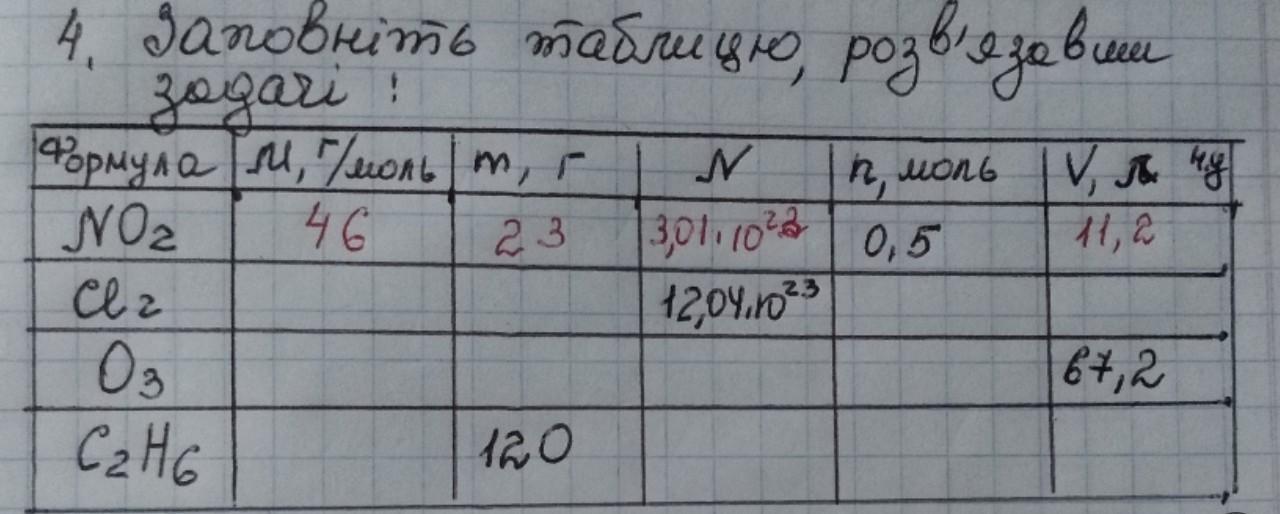 4. Заповніть таблицю, розв'язавши
задачі :
Формула M, г/моль m, г N n, моль V, л н.у
NO2 46 23 3,01·10²³ 0,5 11,2
Cl2 12,04·10²³
O3 67,2
C2H6 120